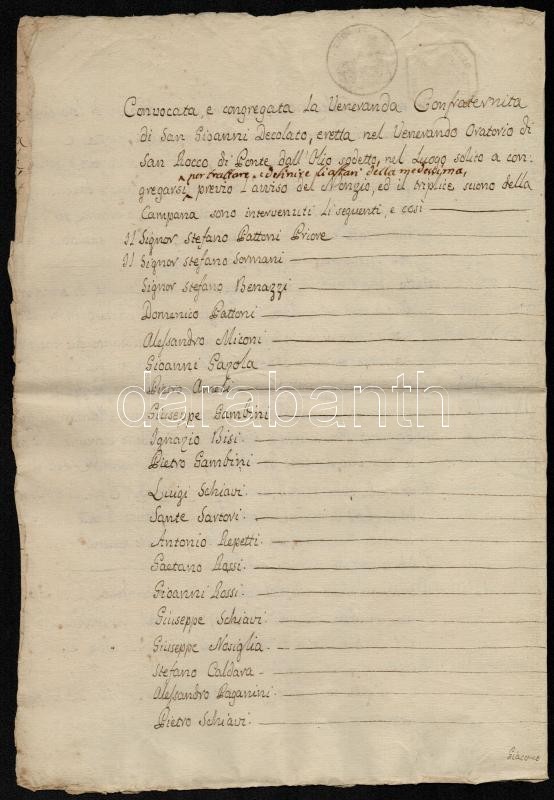 Convocata, e congregata la Veneranda Confraternita
di San Gioanni Decolato, eretta nel Venerando Oratorio di
San Rocco di Ponte dall'Olio sodetto, nel Luogo solito a con-
per trattare, e definire li affari della medesima,
gregarsi previo l'avviso del Nonzio, ed il triplice suono della
Campana sono intervenuti li seguenti, e così
Il Signor Stefano Pattoni Priore
Il Signor Stefano Sormani
Signor Stefano Benazzi
Domenico Pattoni
Alessandro Miconi
Gioanni Gazola
Pietro
darabanth
Giuseppe Gambini
Ignazio Bisi
Pietro Gambini
Luigi Schiavi
Sante Sartori
Antonio Repetti
Gaetano Rossi
Gioanni Rossi
Giuseppe Schiavi
Giuseppe Nosiglia
Stefano Caldara
Alessandro Paganini
Pietro Schiavi
Giacomo